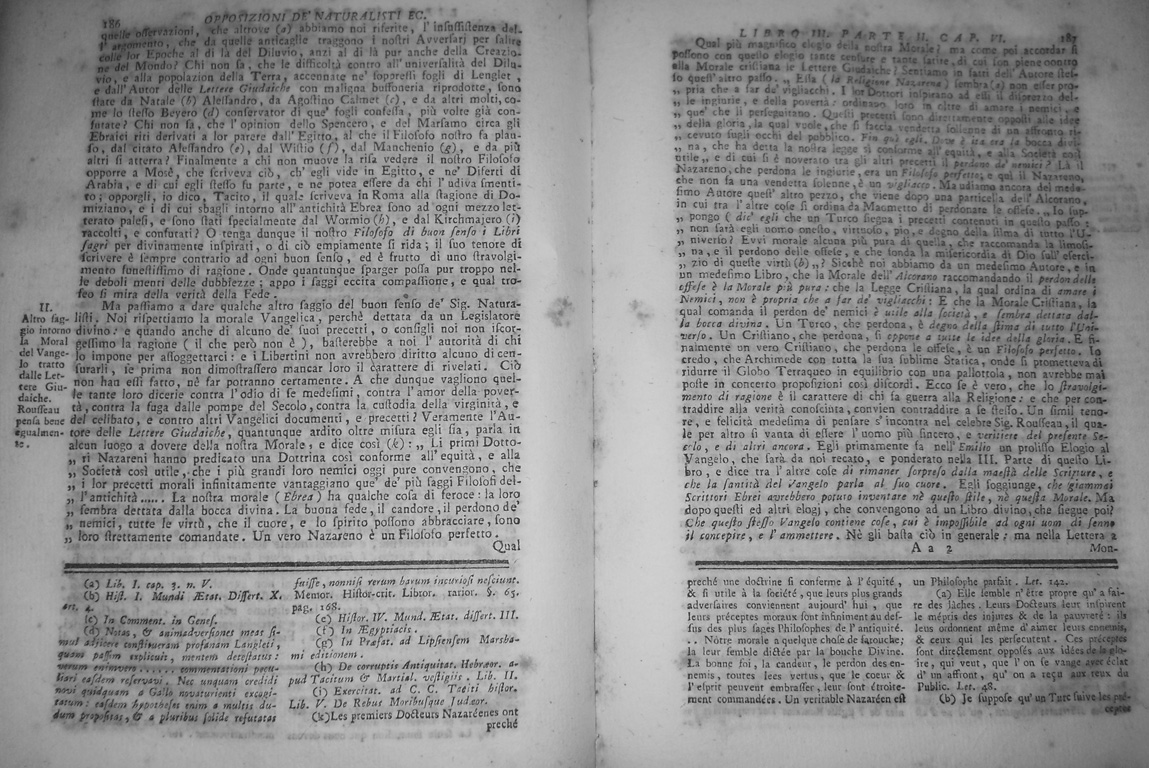 186 OPPOSIZIONI DE' NATURALISTI EC.
quelle osservazioni, che altrove (a) abbiamo noi riferite, l'insussistenza del-
l'argomento, che da quelle anticaglie traggono i nostri Avversarj per salire
colle lor Epoche al di là del Diluvio, anzi al di là pur anche della Creazio-
ne del Mondo? Chi non sa, che le difficoltà contro all'universalità del Dilu-
vio, e alla popolazion della Terra, accennate ne' sopressi fogli di Lenglet,
e dall'Autor delle Lettere Giudaiche con maligna buffoneria riprodotte, sono
state da Natale (b) Alessandro, da Agostino Calmet (c), e da altri molti, co-
me lo stesso Beyero (d) conservator di que' fogli confessa, più volte già con-
futate? Chi non sa, che l'opinion dello Spencero, e del Marsamo circa gli
Ebraici riti derivati a lor parere dall'Egitto, al che il Filosofo nostro fa plau-
so, dal citato Alessandro (e), dal Witsio (f), dal Manchenio (g), e da più
altri si atterra? Finalmente a chi non muove la risa vedere il nostro Filosofo
opporre a Mosè, che scriveva ciò, ch'egli vide in Egitto, e ne' Diserti di
Arabia, e di cui egli stesso fu parte, e ne potea essere da chi l'udiva smenti-
to; opporgli, io dico, Tacito, il quale scriveva in Roma alla stagione di Do-
miziano, e i di cui sbagli intorno all'antichità Ebrea sono ad ogni mezzo let-
terato palesi, e sono stati specialmente dal Wormio (h), e dal Kirchmajero (i)
raccolti, e confutati? O tenga dunque il nostro Filosofo di buon senso i Libri
sagri per divinamente inspirati, o di ciò empiamente si rida; il suo tenore di
scrivere è sempre contrario ad ogni buon senso, ed è frutto di uno stravolgi-
mento funestissimo di ragione. Onde quantunque sparger possa pur troppo nel-
le deboli menti delle dubbiezze; appo i saggi eccita compassione, e qual tro-
feo si mira della verità della Fede.
II.
Altro sag-
gio intorno
la Moral
del Vange-
lo tratto
dalle Let-
tere Giu-
daiche.
Rousseau
pensa bene
egualmen-
te.
Ma passiamo a dare qualche altro saggio del buon senso de' Sig. Natura-
listi. Noi rispettiamo la morale Vangelica, perchè dettata da un Legislatore
divino: e quando anche di alcuno de' suoi precetti, o consigli noi non iscor-
gessimo la ragione (il che però non è), basterebbe a noi l'autorità di chi
lo impone per assoggettarci: e i Libertini non avrebbero diritto alcuno di cen-
surarli, se prima non dimostrassero mancar loro il carattere di rivelati. Ciò
non han essi fatto, nè far potranno certamente. A che dunque vagliono quel-
le tante loro dicerie contro l'odio di se medesimi, contro l'amor della pover-
tà, contro la fuga dalle pompe del Secolo, contro la custodia della virginità, e
del celibato, e contro altri Vangelici documenti, e precetti? Veramente l'Au-
tore delle Lettere Giudaiche, quantunque ardito oltre misura egli sia, parla in
alcun luogo a dovere della nostra Morale, e dice così (k): „ Li primi Dotto-
„ ri Nazareni hanno predicato una Dottrina così conforme all'equità, e alla
„ Società così utile, che i più grandi loro nemici oggi pure convengono, che
„ i lor precetti morali infinitamente vantaggiano que' de' più saggi Filosofi del-
„ l'antichità...... La nostra morale (Ebrea) ha qualche cosa di feroce: la loro
„ sembra dettata dalla bocca divina. La buona fede, il candore, il perdono de'
„ nemici, tutte le virtù, che il cuore, e lo spirito possono abbracciare, sono
„ loro strettamente comandate. Un vero Nazareno è un Filosofo perfetto.
Qual
(a) Lib. I. cap. 3. n. V.
(b) Hist. I. Mundi Ætat. Dissert. X.
art. 4.
(c) In Comment. in Genes.
(d) Notas, & animadversiones meas si-
mul adjicere constitueram profanam Langleti,
quam passim explicuit, mentem detestatus:
verum enimvero ...... commentationi pecu-
liari easdem reservavi. Nec unquam credidi
novi quidquam a Gallo novaturienti excogi-
tatum: easdem hypotheses enim a multis du-
dum propositas, & a pluribus solide refutatas
fuisse, nonnisi rerum harum incuriosi nesciunt.
Memor. Histor-crit. Libror. rarior. §. 65.
pag. 168.
(e) Histor. IV. Mund. Ætat. dissert. III.
(f) In Ægyptiacis.
(g) In Præfat. ad Lipsiensem Marsha-
mi editionem.
(h) De corruptis Antiquitat. Hebræor. a-
pud Tacitum & Martial. vestigiis. Lib. II.
(i) Exercitat. ad C. C. Taciti histor.
Lib. V. De Rebus Moribusque Judæor.
(k) Les premiers Docteurs Nazaréenes ont
preché
LIBRO III. PARTE II. CAP. VI. 187
Qual più magnifico elogio della nostra Morale? ma come poi accordar si
possono con quello elogio tante censure e tante satire, di cui son piene contro
alla Morale cristiana le Lettere Giudaiche? Sentiamo in fatti dell'Autore stes-
so quest'altro passo. „ Essa (la Religione Nazarena) sembra (a) non esser pro-
„ pria che a far de' vigliacchi. I lor Dottori inspirano ad essi il disprezzo del-
„ le ingiurie, e della povertà: ordinano loro in oltre di amare i nemici, e
„ que' che il perseguitano. Questi precetti sono direttamente opposti alle idee
„ della gloria, la qual vuole, che si faccia vendetta solenne di un affronto ri-
„ cevuto sugli occhi del pubblico. Fin quì egli. Dove è ita ora la bocca divi-
„ na, che ha detta la nostra legge sì conforme all'equità, e alla Società così
utile„, e di cui si è noverato tra gli altri precetti il perdono de' nemici? Là il
Nazareno, che perdona le ingiurie, era un Filosofo perfetto, e quì il Nazareno,
che non fa una vendetta solenne, è un vigliacco. Ma udiamo ancora del mede-
simo Autore quest'altro pezzo, che viene dopo una particella dell'Alcorano,
in cui tra l'altre cose si ordina da Maometto di perdonare le offese. „ Io sup-
„ pongo (dic'egli) che un Turco siegua i precetti contenuti in questo passo:
„ non sarà egli uomo onesto, virtuoso, pio, e degno della stima di tutto l'U-
„ niverso? Evvi morale alcuna più pura di quella, che raccomanda la limosi-
„ na, e il perdono delle offese, e che fonda la misericordia di Dio sull'eserci-
„ zio di queste virtù (b)„? Sicchè noi abbiamo da un medesimo Autore, e in
un medesimo Libro, che la Morale dell'Alcorano raccomandando il perdon delle
offese è la Morale più pura: che la Legge Cristiana, la qual ordina di amare i
Nemici, non è propria che a far de' vigliacchi: E che la Morale Cristiana, la
qual comanda il perdon de' nemici è utile alla società, e sembra dettata dal-
la bocca divina. Un Turco, che perdona, è degno della stima di tutto l'Uni-
verso. Un Cristiano, che perdona, si oppone a tutte le idee della gloria. E fi-
nalmente un vero Cristiano, che perdona le offese, è un Filosofo perfetto. Io
credo, che Archimede con tutta la sua sublime Statica, onde si prometteva di
ridurre il Globo Terraqueo in equilibrio con una pallottola, non avrebbe mai
poste in concerto proposizioni così discordi. Ecco se è vero, che lo stravolgi-
mento di ragione è il carattere di chi fa guerra alla Religione: e che per con-
traddire alla verità conosciuta, convien contraddire a se stesso. Un simil teno-
re, e felicità medesima di pensare s'incontra nel celebre Sig. Rousseau, il qua-
le per altro si vanta di essere l'uomo più sincero, e veritiere del presente Se-
colo, e di altri ancora. Egli primamente fa nell'Emilio un prolisso Elogio al
Vangelo, che sarà da noi recato, e ponderato nella III. Parte di questo Li-
bro, e dice tra l'altre cose di rimaner sorpreso dalla maestà delle Scripture, e
che la santità del Vangelo parla al suo cuore. Egli soggiunge, che giammai
Scrittori Ebrei avrebbero potuto inventare nè questo stile, nè questa Morale. Ma
dopo questi ed altri elogj, che convengono ad un Libro divino, che siegue poi?
Che questo stesso Vangelo contiene cose, cui è impossibile ad ogni uom di senno
il concepire, e l'ammettere. Nè gli basta ciò in generale: ma nella Lettera 2
A a 2 Mon-
preché une doctrine si conforme à l'équité,
& si utile à la société, que leurs plus grands
adversaires conviennent aujourd'hui, que
leurs préceptes moraux sont infiniment au des-
sus des plus sages Philosophes de l'antiquité.
.. Nôtre morale a quelque chose de farouche;
la leur semble dictée par la bouche Divine.
La bonne foi, la candeur, le perdon des en-
nemis, toutes lees vertus, que le coeur &
l'esprit peuvent embrasser, leur sont étroite-
ment commandées. Un veritable Nazaréen est
un Philosophe parfait. Let. 142.
(a) Elle semble n'être propre qu'a fai-
re des lâches. Leurs Docteurs leur inspirent
le mépris des injures & de la pauvreté: ils
leus ordonnent même d'aimer leurs ennemis,
& ceux qui les persecutent. Ces préceptes
sont directement opposés aux idées de la glo-
ire, qui veut, que l'on se vange avec éclat
d'un affront, qu'on a reçu aux yeux du
Public. Let. 48.
(b) Je suppose qu'un Turc suive les pré-
ceptes